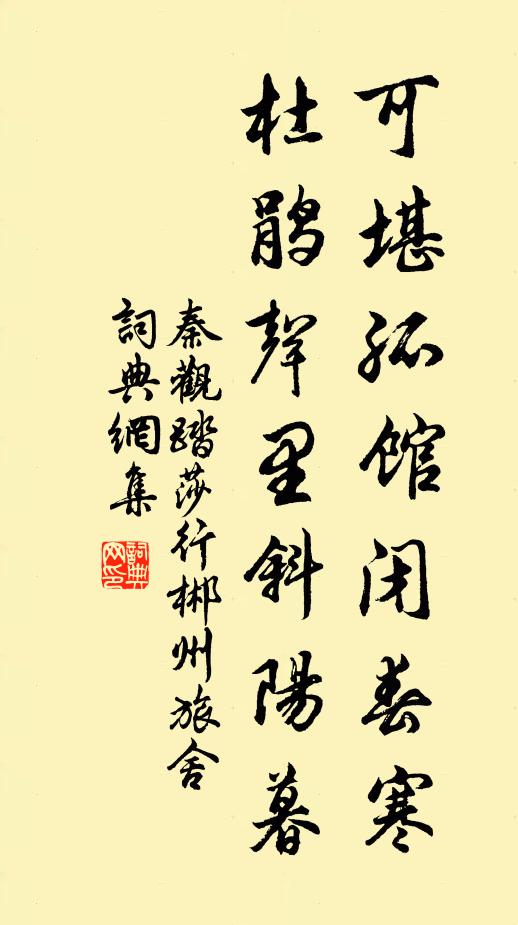 可堪孤馆闭春寒
杜鹃聲里斜陽暮
秦觀踏莎行郴州旅舍
詞典網集
詞典网印